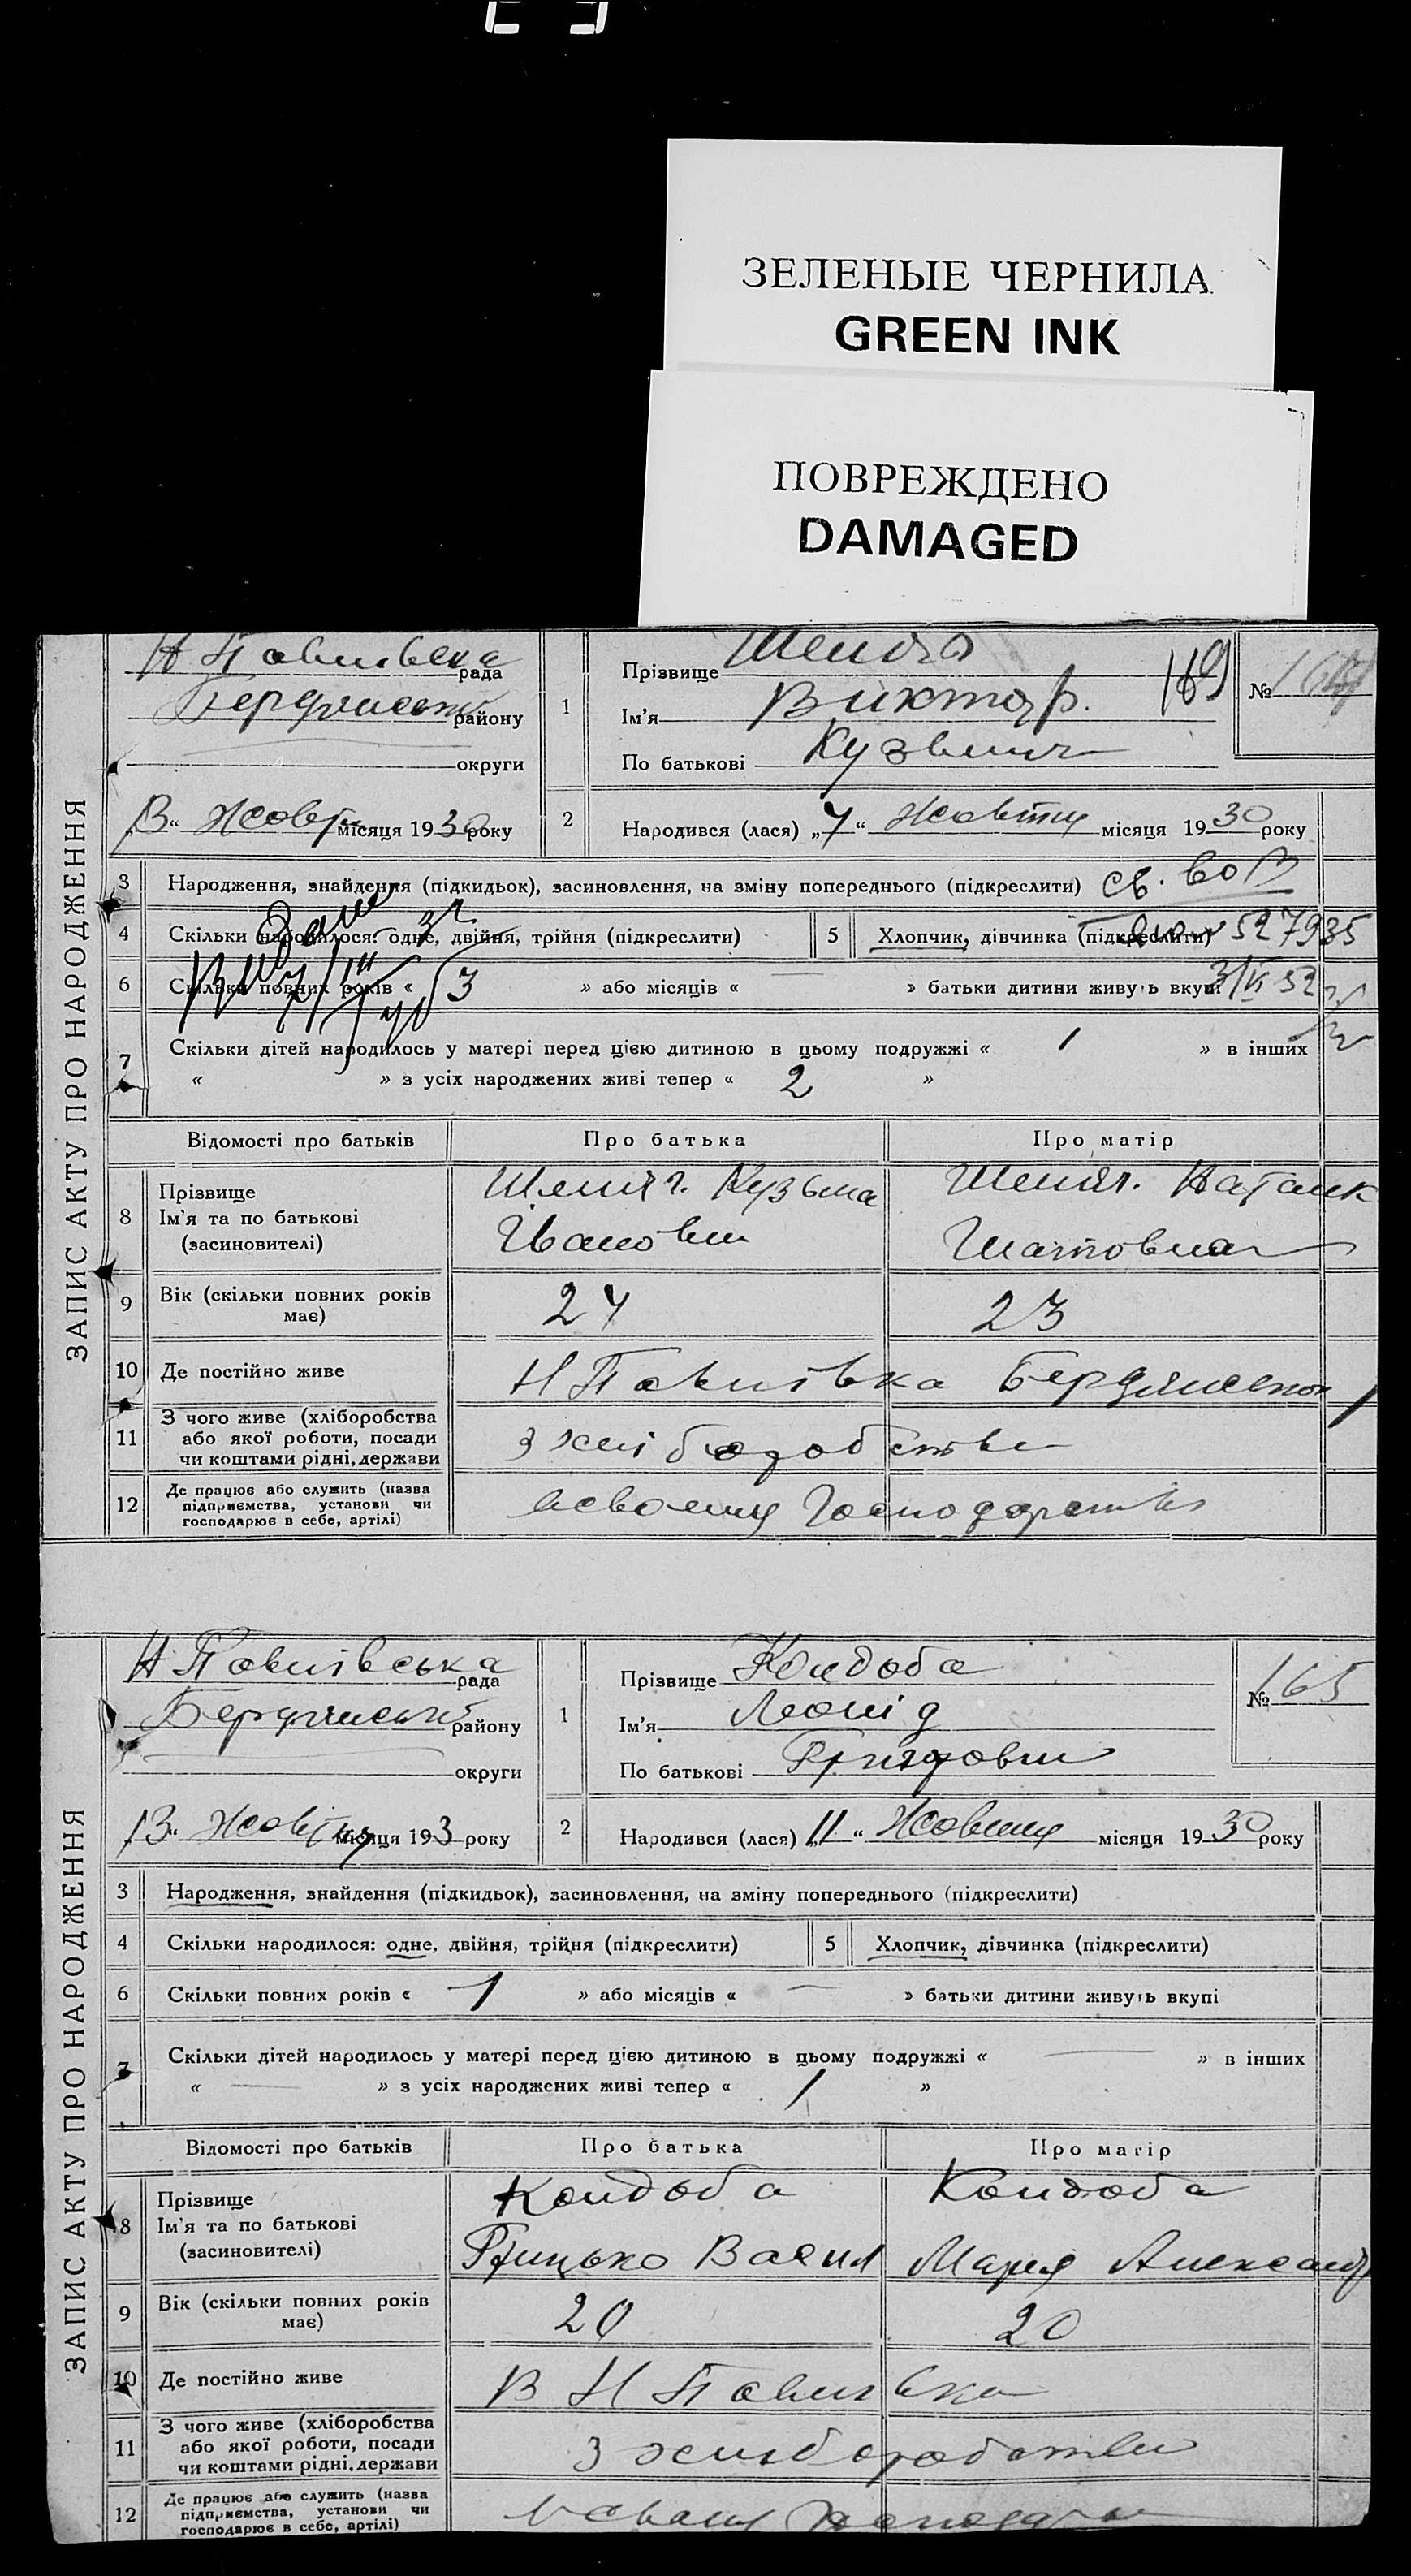 ЗЕЛЕНЫЕ ЧЕРНИЛА
GREEN INK
ПОВРЕЖДЕНО
DAMAGED
ЗАПИС АКТУ ПРО НАРОДЖЕННЯ
рада
району
округи
Жовт місяця 1930 року
1
Прізвище
Ім'я Виктор.
169
№ 164
По батькові Кузьмич
2 Народився (лася) „7“ Жовтня місяця 1930 року
3 Народження, знайдення (підкидьок), засиновлення, на зміну попереднього (підкреслити) св.
4 Скільки народилося: одне, двійня, трійня (підкреслити)
5 Хлопчик, дівчинка (підкреслити) 527935
6 Скільки повних років « 3 » або місяців « — » батьки дитини живуть вкупі 3/VI 52
7 Скільки дітей народилось у матері перед цією дитиною в цьому подружжі « 1 » в інших
« » з усіх народжених живі тепер « 2 »
Відомості про батьків Про батька Про матір
8 Прізвище
Ім'я та по батькові
(засиновителі)
Кузьма
Іванови
9 Вік (скільки повних років має) 24 23
10 Де постійно живе Н Павлівка
11 З чого живе (хліборобства
або якої роботи, посади
чи коштами рідні, держави
з хліборобства
12 Де працює або служить (назва
підприємства, установи чи
господарює в себе, артілі)
ЗАПИС АКТУ ПРО НАРОДЖЕННЯ
Н Павлівська рада
району
округи
„13“ Жовтня місяця 193 року
1
Прізвище Кондоба
Ім'я Леонід
№ 165
По батькові
2 Народився (лася) „11“ Жовтня місяця 1930 року
3 Народження, знайдення (підкидьок), засиновлення, на зміну попереднього (підкреслити)
4 Скільки народилося: одне, двійня, трійня (підкреслити)
5 Хлопчик, дівчинка (підкреслити)
6 Скільки повних років « 1 » або місяців « — » батьки дитини живуть вкупі
7 Скільки дітей народилось у матері перед цією дитиною в цьому подружжі « — » в інших
« — » з усіх народжених живі тепер « 1 »
Відомості про батьків Про батька Про матір
8 Прізвище
Ім'я та по батькові
(засиновителі)
Кондоба Кондоба
Грицько Васил Мария Александр
9 Вік (скільки повних років має) 20 20
10 Де постійно живе В Н Павлівка
11 З чого живе (хліборобства
або якої роботи, посади
чи коштами рідні, держави
з хліборобства
12 Де працює або служить (назва
підприємства, установи чи
господарює в себе, артілі)